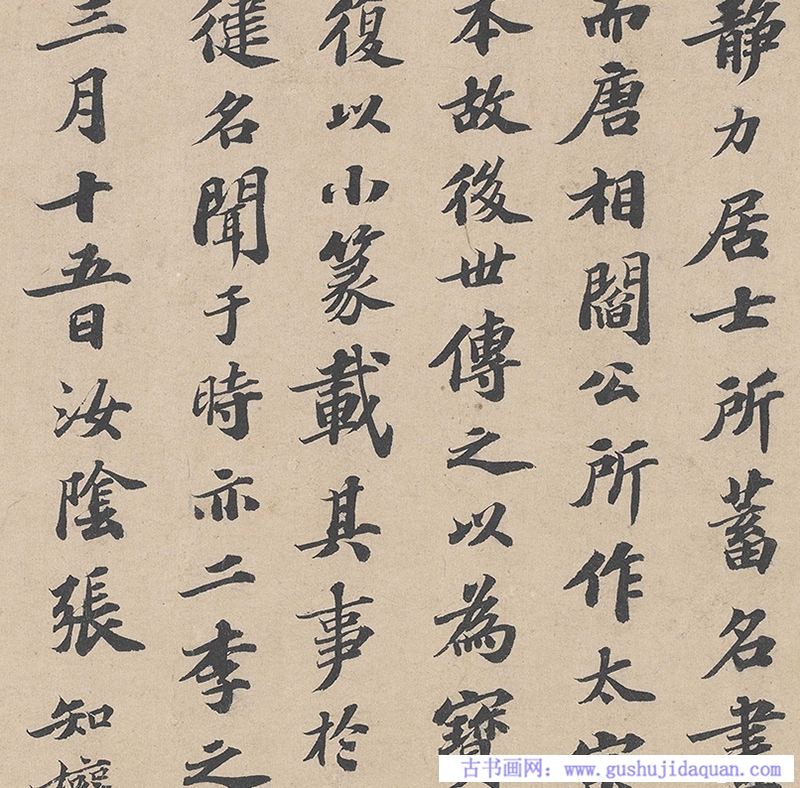 靜力居士所蓄名畫
而唐相閻公所作太宗
本故後世傳之以為寶
復以小篆載其事於
徤名聞于時亦二李之
三月十五日汝陰張知權
古书画网：www.gushujidaquan.com